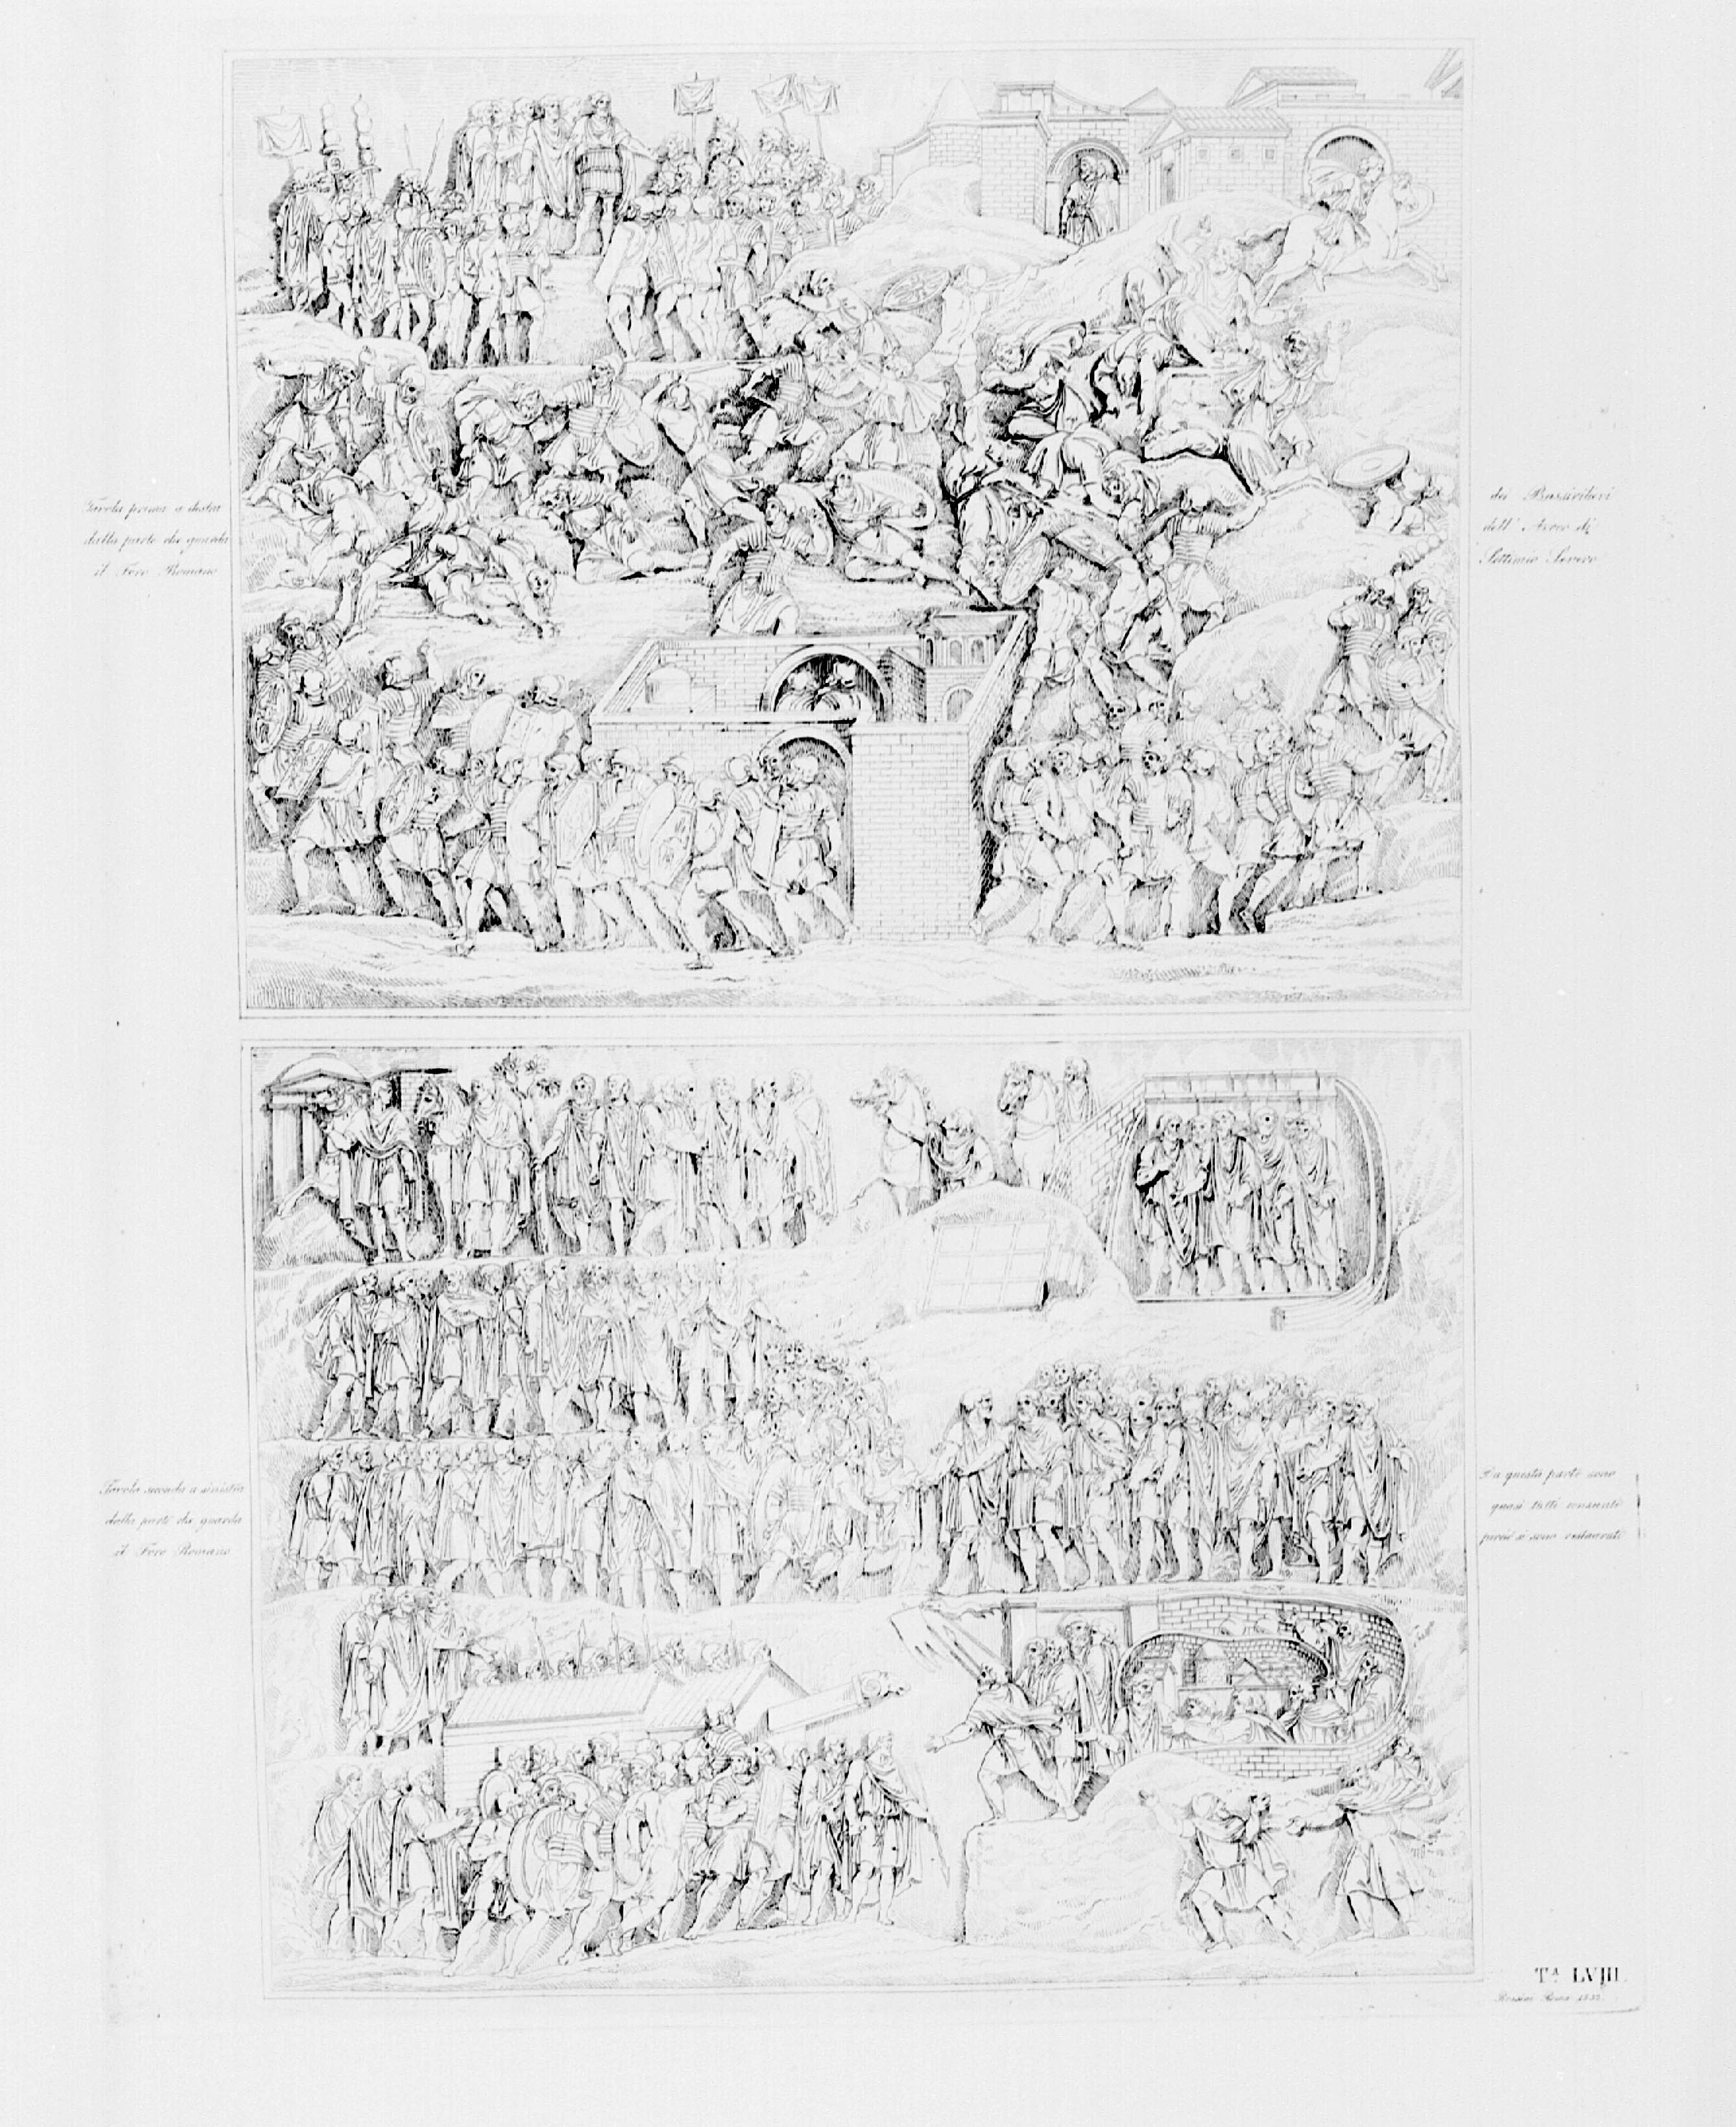 Tavola prima a destra
dalla parte che guarda
il Foro Romano
dei Bassirilievi
dell' Arco di
Settimio Severo
Tavola seconda a sinistra
dalla parte che guarda
il Foro Romano
Da questa parte sono
quasi tutti consunti
perciò si sono restaurati
Tª LVIII.
Rossini Roma